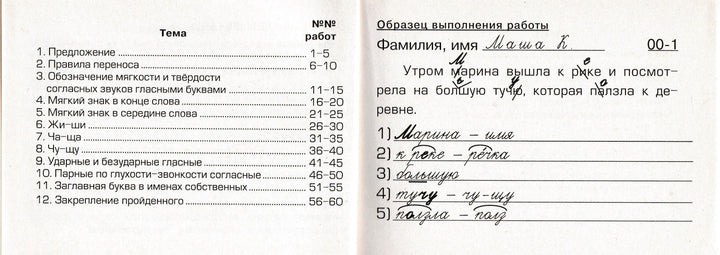 Тема
№№
работ
1. Предложение 1–5
2. Правила переноса 6–10
3. Обозначение мягкости и твёрдости
согласных звуков гласными буквами 11–15
4. Мягкий знак в конце слова 16–20
5. Мягкий знак в середине слова 21–25
6. Жи-ши 26–30
7. Ча-ща 31–35
8. Чу-щу 36–40
9. Ударные и безударные гласные 41–45
10. Парные по глухости-звонкости согласные 46–50
11. Заглавная буква в именах собственных 51–55
12. Закрепление пройденного 56–60
Образец выполнения работы
Фамилия, имя Маша К. 00-1
Утром марина вышла к рике и посмот-
рела на болшую тучю, которая палзла к де-
ревне.
1) Марина – имя
2) к реке – речка
3) большую
4) тучу – чу-щу
5) ползла – полз